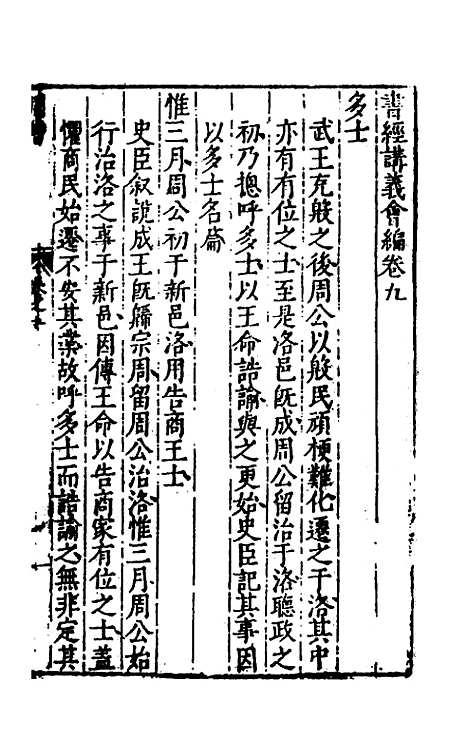 書經講義會編卷九
多士
武王克殷之後周公以殷民頑梗難化遷之于洛其中
亦有有位之士至是洛邑旣成周公留治于洛聽政之
初乃摠呼多士以王命誥諭與之更始史臣記其事因
以多士名篇
惟三月周公初于新邑洛用告商王士
史臣叙說成王旣歸宗周留周公治洛惟三月周公始
行治洛之事于新邑因傳王命以告商家有位之士蓋
懼商民始遷不安其業故呼多士而誥諭之無非定其